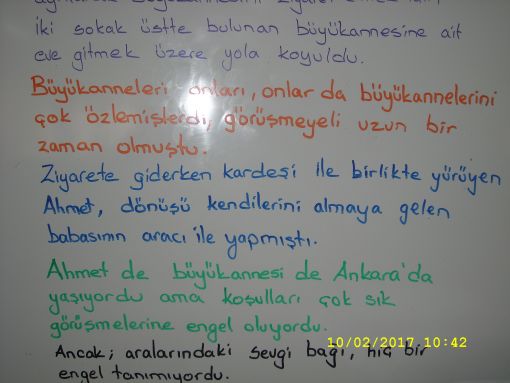 iki sokak üstte bulunan büyükannesine ait
eve gitmek üzere yola koyuldu.
Büyükanneleri onları, onlar da büyükannelerini
çok özlemişlerdi, görüşmeyeli uzun bir
zaman olmuştu.
Ziyarete giderken kardeşi ile birlikte yürüyen
Ahmet, dönüşü kendilerini almaya gelen
babasının aracı ile yapmıştı.
Ahmet de büyükannesi de Ankara'da
yaşıyordu ama koşulları çok sık
görüşmelerine engel oluyordu.
10/02/2017 10:42
Ancak; aralarındaki sevgi bağı, hiç bir
engel tanımıyordu.